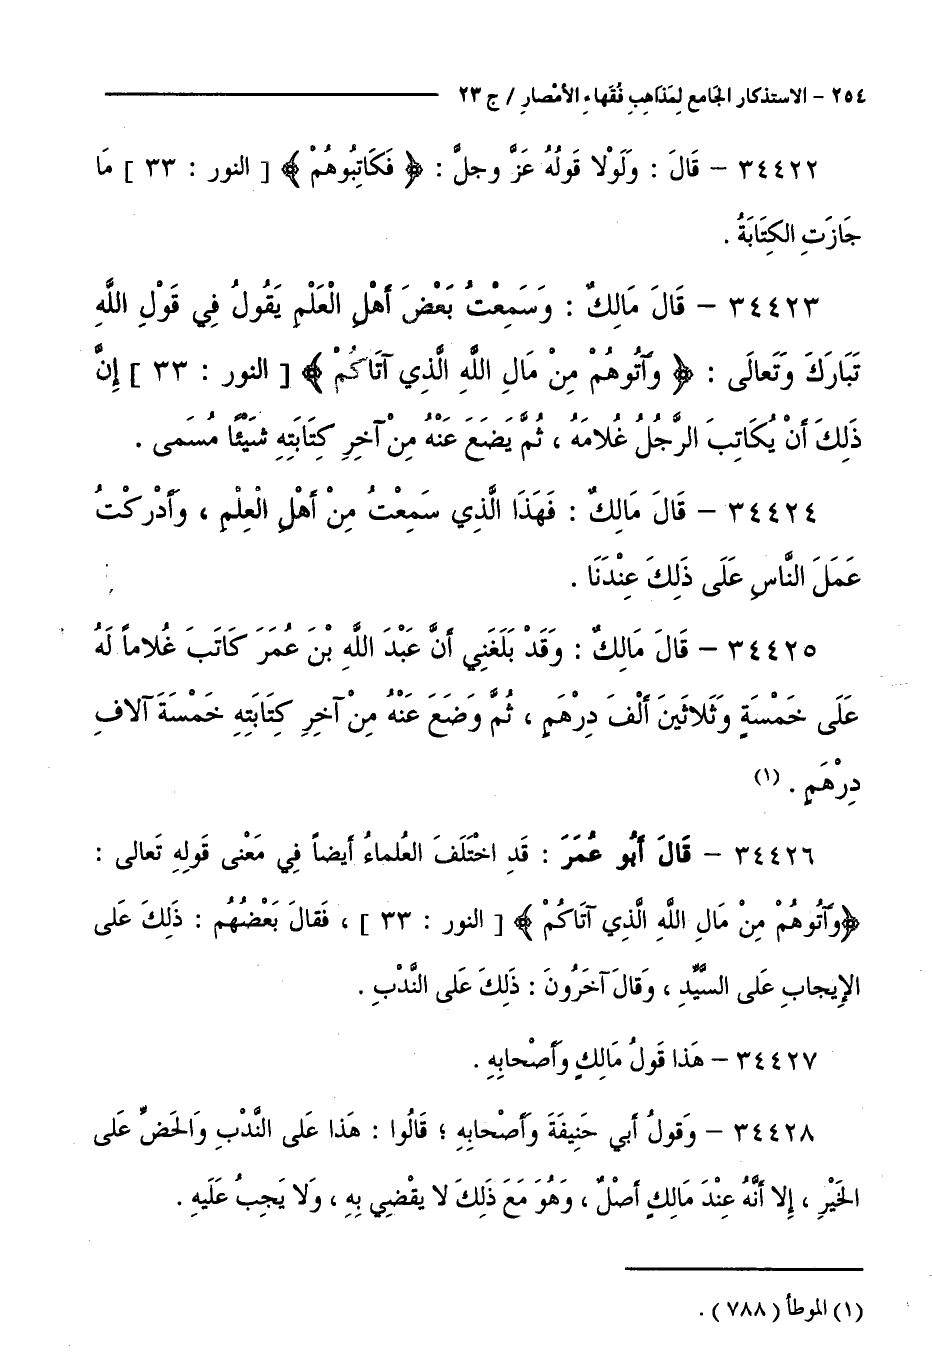 ٢٥٤ - الاستذكار الجَامع لِمَذَاهِبِ فُقَهاءِ الأمْصارِ / ج ٢٣
٣٤٤٢٢ - قَالَ : وَلَوْلا قَولُهُ عَزَّ وجلَّ : ﴿ فَكَاتِبُوهُمْ ﴾ [ النور : ٣٣ ] مَا
جَازَتِ الكِتَابَةُ .
٣٤٤٢٣ - قَالَ مَالِكٌ : وَسَمِعْتُ بَعْضَ أهْلِ الْعَلْمِ يَقُولُ فِي قَوْلِ اللَّهِ
تَبَارَكَ وَتَعالَى : ﴿ وَآتُوهُمْ مِنْ مَالِ اللَّهِ الَّذِي آتَاكُمْ ﴾ [ النور : ٣٣ ] إنَّ
ذَلِكَ أنْ يُكَاتِبَ الرَّجُلُ غُلامَهُ ، ثُمَّ يَضَعَ عَنْهُ مِنْ آخِرِ كِتَابَتِهِ شَيْئًا مُسَمى .
٣٤٤٢٤ - قَالَ مَالِكٌ : فَهَذَا الَّذِي سَمِعْتُ مِنْ أهْلِ الْعِلْمِ ، وَأدْركْتُ
عَمَلَ النَّاسِ عَلَى ذَلِكَ عِنْدَنَا .
٣٤٤٢٥ - قَالَ مَالِكٌ : وَقَدْ بَلَغَنِي أنَّ عَبْدَ اللَّهِ بْنَ عُمَرَ كَاتَبَ غُلاماً لَهُ
عَلَى خَمْسَةٍ وَثَلاثَينَ ألْفَ دِرْهَمٍ ، ثُمَّ وَضَعَ عَنْهُ مِنْ آخِرِ كِتَابَتِهِ خَمْسَةَ آلافِ
دِرْهَمٍ . (١)
٣٤٤٢٦ - قَالَ أَبُو عُمَرَ : قَدِ اخْتَلَفَ العُلماءُ أيضاً فِي مَعْنى قَولِهِ تَعالى :
﴿وَآتُوهُمْ مِنْ مَالِ اللَّهِ الَّذِي آتَاكُمْ ﴾ [ النور : ٣٣ ] ، فَقالَ بَعْضُهُم : ذَلِكَ عَلى
الإِيجابِ عَلى السَّيِّدِ ، وَقالَ آخَرُونَ : ذَلِكَ عَلى النَّدْبِ .
٣٤٤٢٧ - هَذا قَولُ مَالِكٍ وَأصْحابِهِ .
٣٤٤٢٨ - وَقولُ أبي حَنِيفَةَ وَأصْحابِهِ ؛ قَالُوا : هَذا عَلى النَّدْبِ وَالحَضِّ عَلى
الخَيْرِ ، إِلا أنَّهُ عِنْدَ مَالِكٍ أصْلٌ ، وَهُوَ مَعَ ذَلِكَ لا يقْضِي بِهِ ، وَلا يَجِبُ عَلَيهِ .
(١) الموطأ ( ٧٨٨ ) .